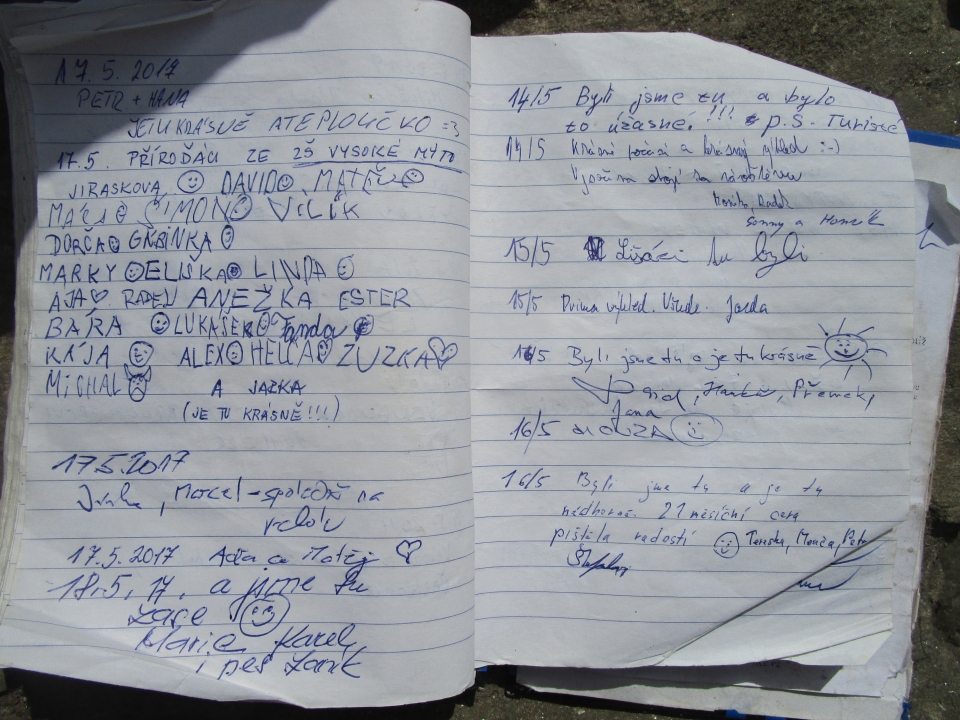 17.5.2017
PETR + HANA
JE TU KRÁSNĚ A TEPLOUČKO =3
17.5. PŘÍRODÁCI ZE ZŠ VYSOKÉ MÝTO
JIRASKOVA DAVID MATĚJ
ŠIMON VILÍK
DORČA GRÉBINKA
MARKY ELIŠKA LINDA
AJA RADEJ ANEŽKA ESTER
BÁRA LUKÁŠEK Fanda
KÁJA ALEX HELČA ZUZKA
MICHAL A JAZKA
(JE TU KRÁSNĚ!!!)
17.5.2017
Marcel - společně na
17.5.2017 a Matěj
18.5.17. a jsme tu
zase
Marie Karel
i pes
14/5 Byli jsme tu a bylo
to úžasné!!! p.S. Turisté
14/5 Krásné počasí a krásný výhled :-)
Monika, Radek
Sonny a Honzík
15/5 Lišáci tu byli
15/5 Prima výhled. Jarda
16/5 Byli jsme tu a je tu krásně
Hanka, Přemek,
Jana
16/5
16/5 Byli jsme tu a je tu
nádherně. 21 měsíční cera
pištěla radostí Terezka, Monča, Petr